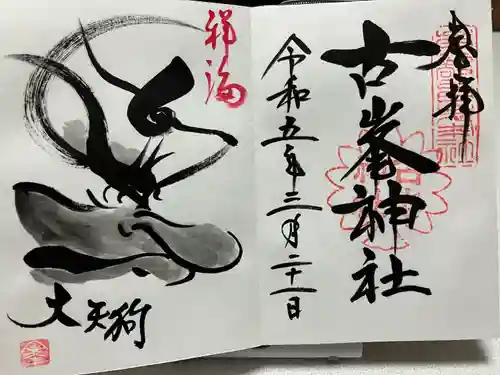 奉拝
古峯神社
令和五年三月二十一日
祥福
大天狗